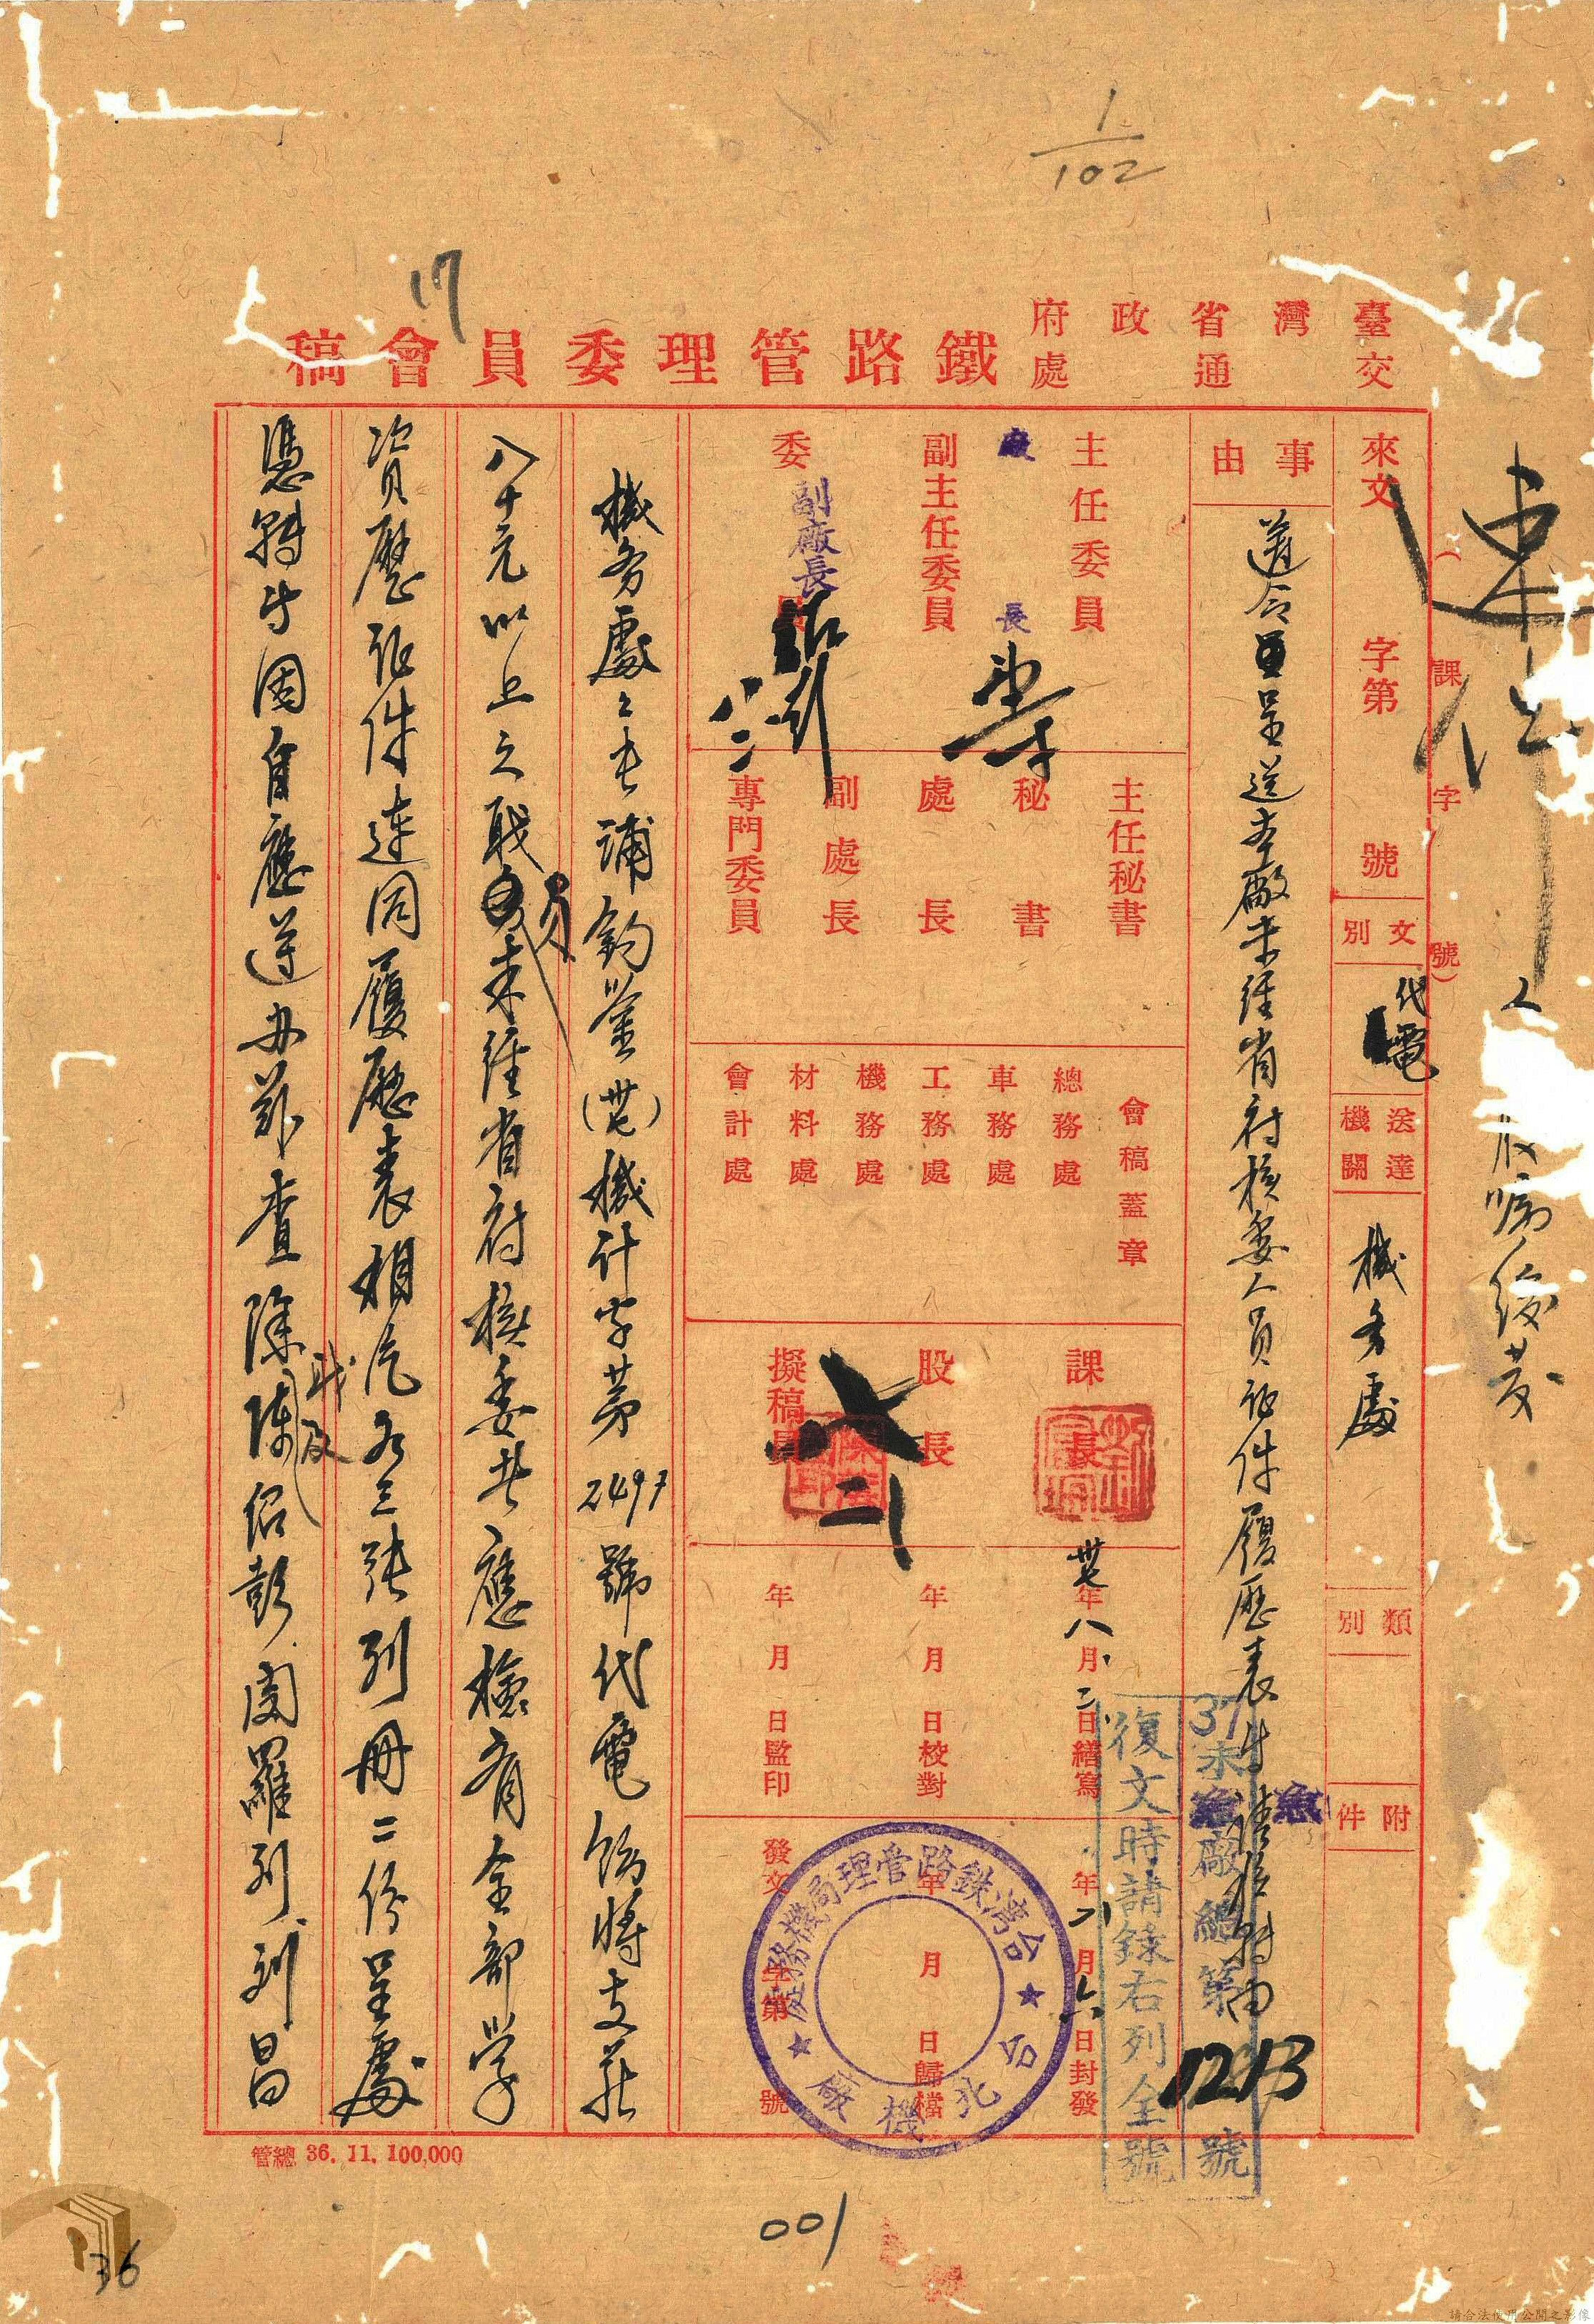 1/102
17
臺灣省政府
交通處
鐵路管理委員會稿
速
來文 字第 號
(課 字 號)
文別 代電
送達機關 機务處
類別
附件
事由 遵令呈送本廠未經省府核委人員証件履歷表
急
37未 廠總第 號
1213
復文時請錄右列全號
主任委員
廠長
副主任委員
委員
副廠長
八二
主任秘書
秘書
處長
副處長
專門委員
會稿蓋章
總務處
車務處
工務處
機務處
材料處
會計處
課長
股長
擬稿員
卅七年八月二日繕寫
年 月 日校對
年 月 日監印
年八月六日封發
年 月 日歸檔
發文 字第 號
台湾鉄路管理局機務處
台北機廠
機务處
鈞鑒(卅七)機計字第2497號代電飭將支薪
八十元以上之职員未經省府核委者應檢齊全部學
資歷証件連同履歷表相片各三張列冊二份呈處
憑轉等因自應遵办茲查除职及陳紹彭
管總 36. 11. 100,000
001
36
請合法使用公開之影像